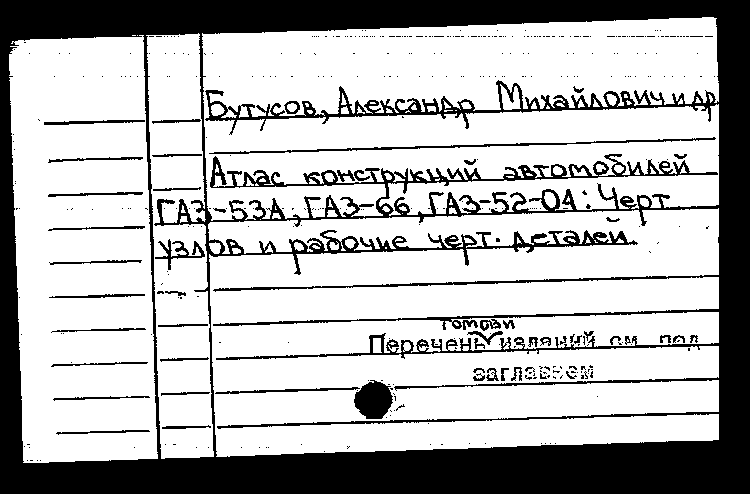 Бутусов, Александр Михайлович и др
Атлас конструкций автомобилей
ГАЗ-53А, ГАЗ-66, ГАЗ-52-04: Черт
узлов и рабочие черт. деталей.
томови
Перечень изданий см под
заглавием